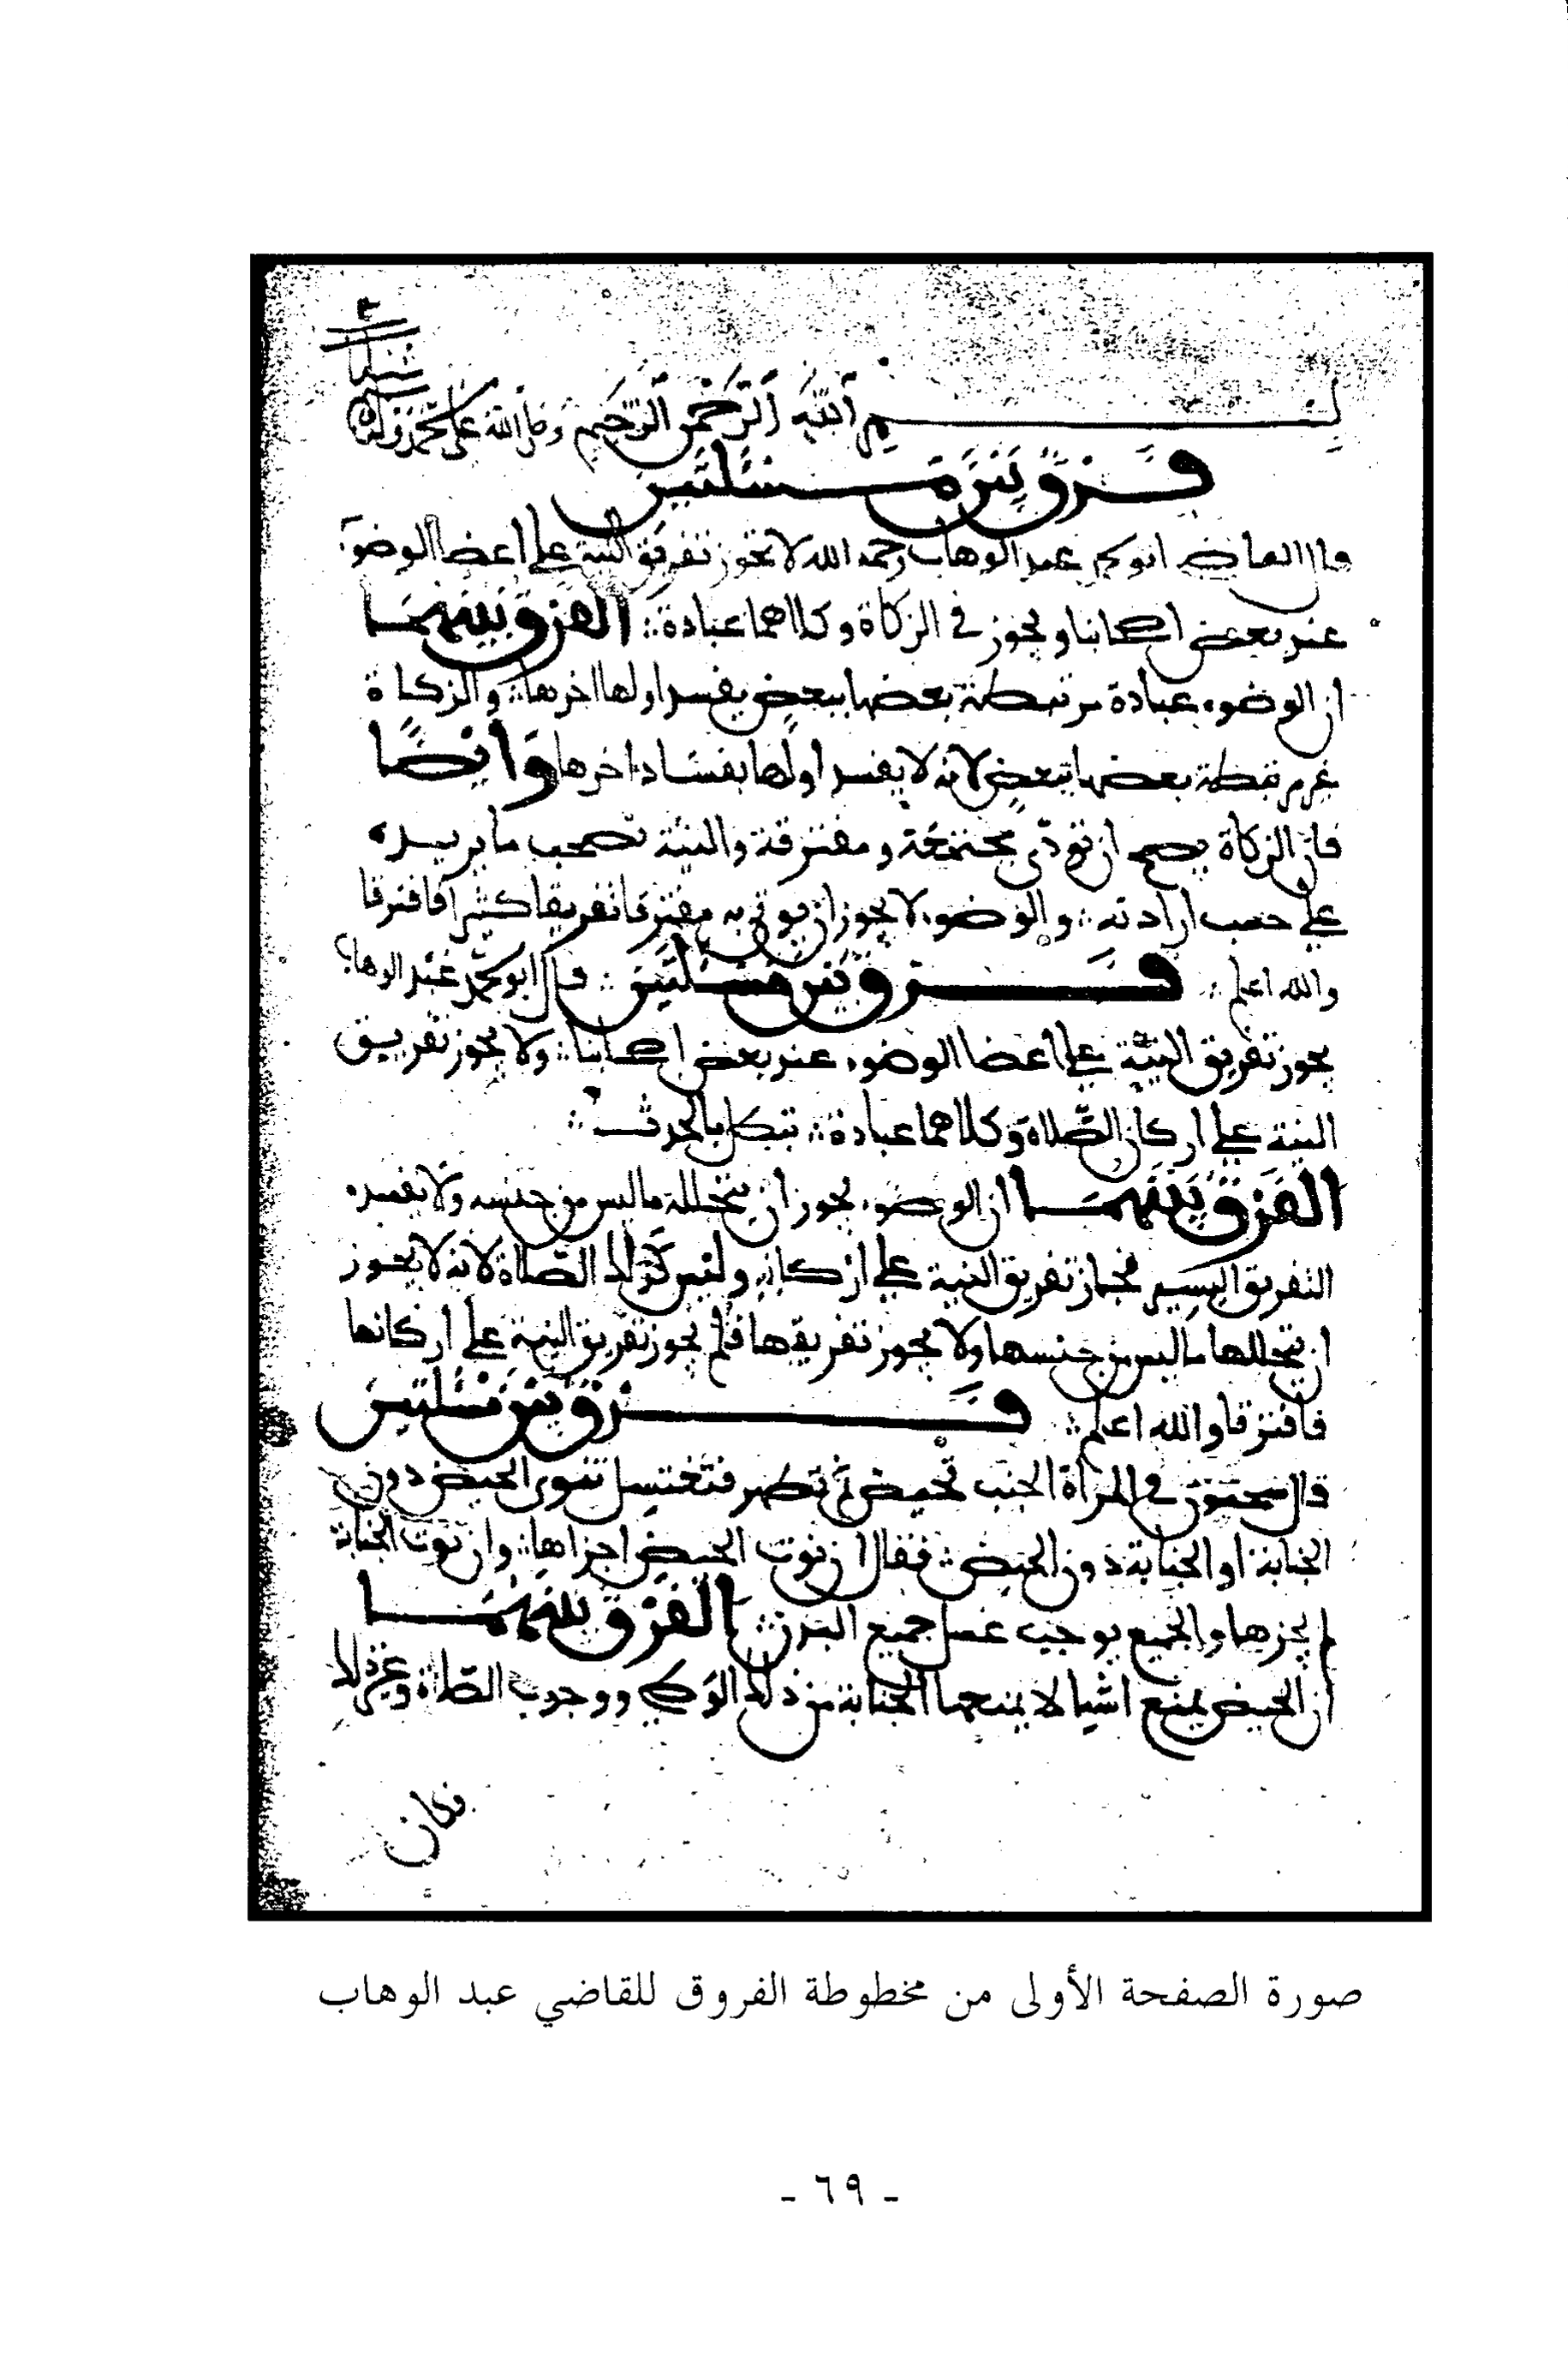 ٢
بسم الله الرحمن الرحيم وصلى الله على محمد وآله
فرق بين مسئلتين
قال القاضي ابو محمد عبد الوهاب رحمه الله لا يجوز تفريق النية على اعضا الوضوء
عند بعض اصحابنا ويجوز في الزكاة وكلاهما عبادة الفرق بينهما
ان الوضوء عبادة مرتبطة بعضها ببعض يفسد اولها اخرها والزكاة
غير مرتبطة بعضها ببعض لانه لا يفسد اولها بفساد اخرها وايضا
فان الزكاة يصح ان تودى مجتمعة ومفترقة والنية تصحب ما يريده
على حسب ارادته والوضوء لا يجوز ان يوتى به مفترقا تفريقا كثيرا فافترقا
والله اعلم فرق بين مسئلتين قال ابو محمد عبد الوهاب
يجوز تفريق النية على اعضا الوضوء عند بعض اصحابنا ولا يجوز تفريق
النية على اركان الصلاة وكلاهما عبادة تبطل بالحدث
الفرق بينهما ان الوضوء يجوز ان يتخلله ما ليس من جنسه ولا يفسده
التفريق اليسير فجاز تفريق النية على اركانه وليس كذلك الصلاة لانه لا يجوز
ان يتخللها ما ليس من جنسها ولا يجوز تفريقها فلم يجوز تفريق النية على اركانها
فافترقا والله اعلم فرق بين مسئلتين
قال سحنون في المراة الجنب تحيض ثم تطهر فتغتسل تنوي الحيض دون
الجنابة او الجنابة دون الحيض فقال ان نوت الحيض اجزاها وان نوت الجنابة
لم يجزها والجميع يوجب غسل جميع البدن الفرق بينهما
ان الحيض يمنع اشيا لا يمنعها الجنابة من ذلك الوطي ووجوب الصلاة وغير ذلك
فكان
صورة الصفحة الأولى من مخطوطة الفروق للقاضي عبد الوهاب
- ٦٩ -